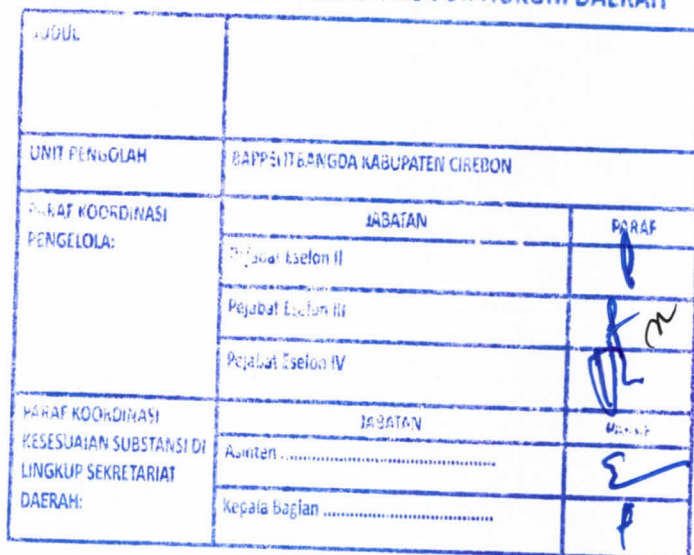 HUKUM DAERAH
JUDUL
UNIT PENGOLAH
BAPPELITBANGDA KABUPATEN CIREBON
PARAF KOORDINASI
PENGELOLA:
JABATAN
PARAF
Pejabat Eselon II
Pejabat Eselon III
Pejabat Eselon IV
PARAF KOORDINASI
KESESUAIAN SUBSTANSI DI
LINGKUP SEKRETARIAT
DAERAH:
JABATAN
PARAF
Asisten ..........................................
Kepala Bagian .................................